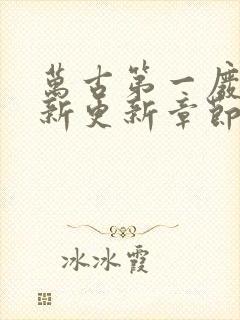 萬古第一
新更新章節
冰冰霞